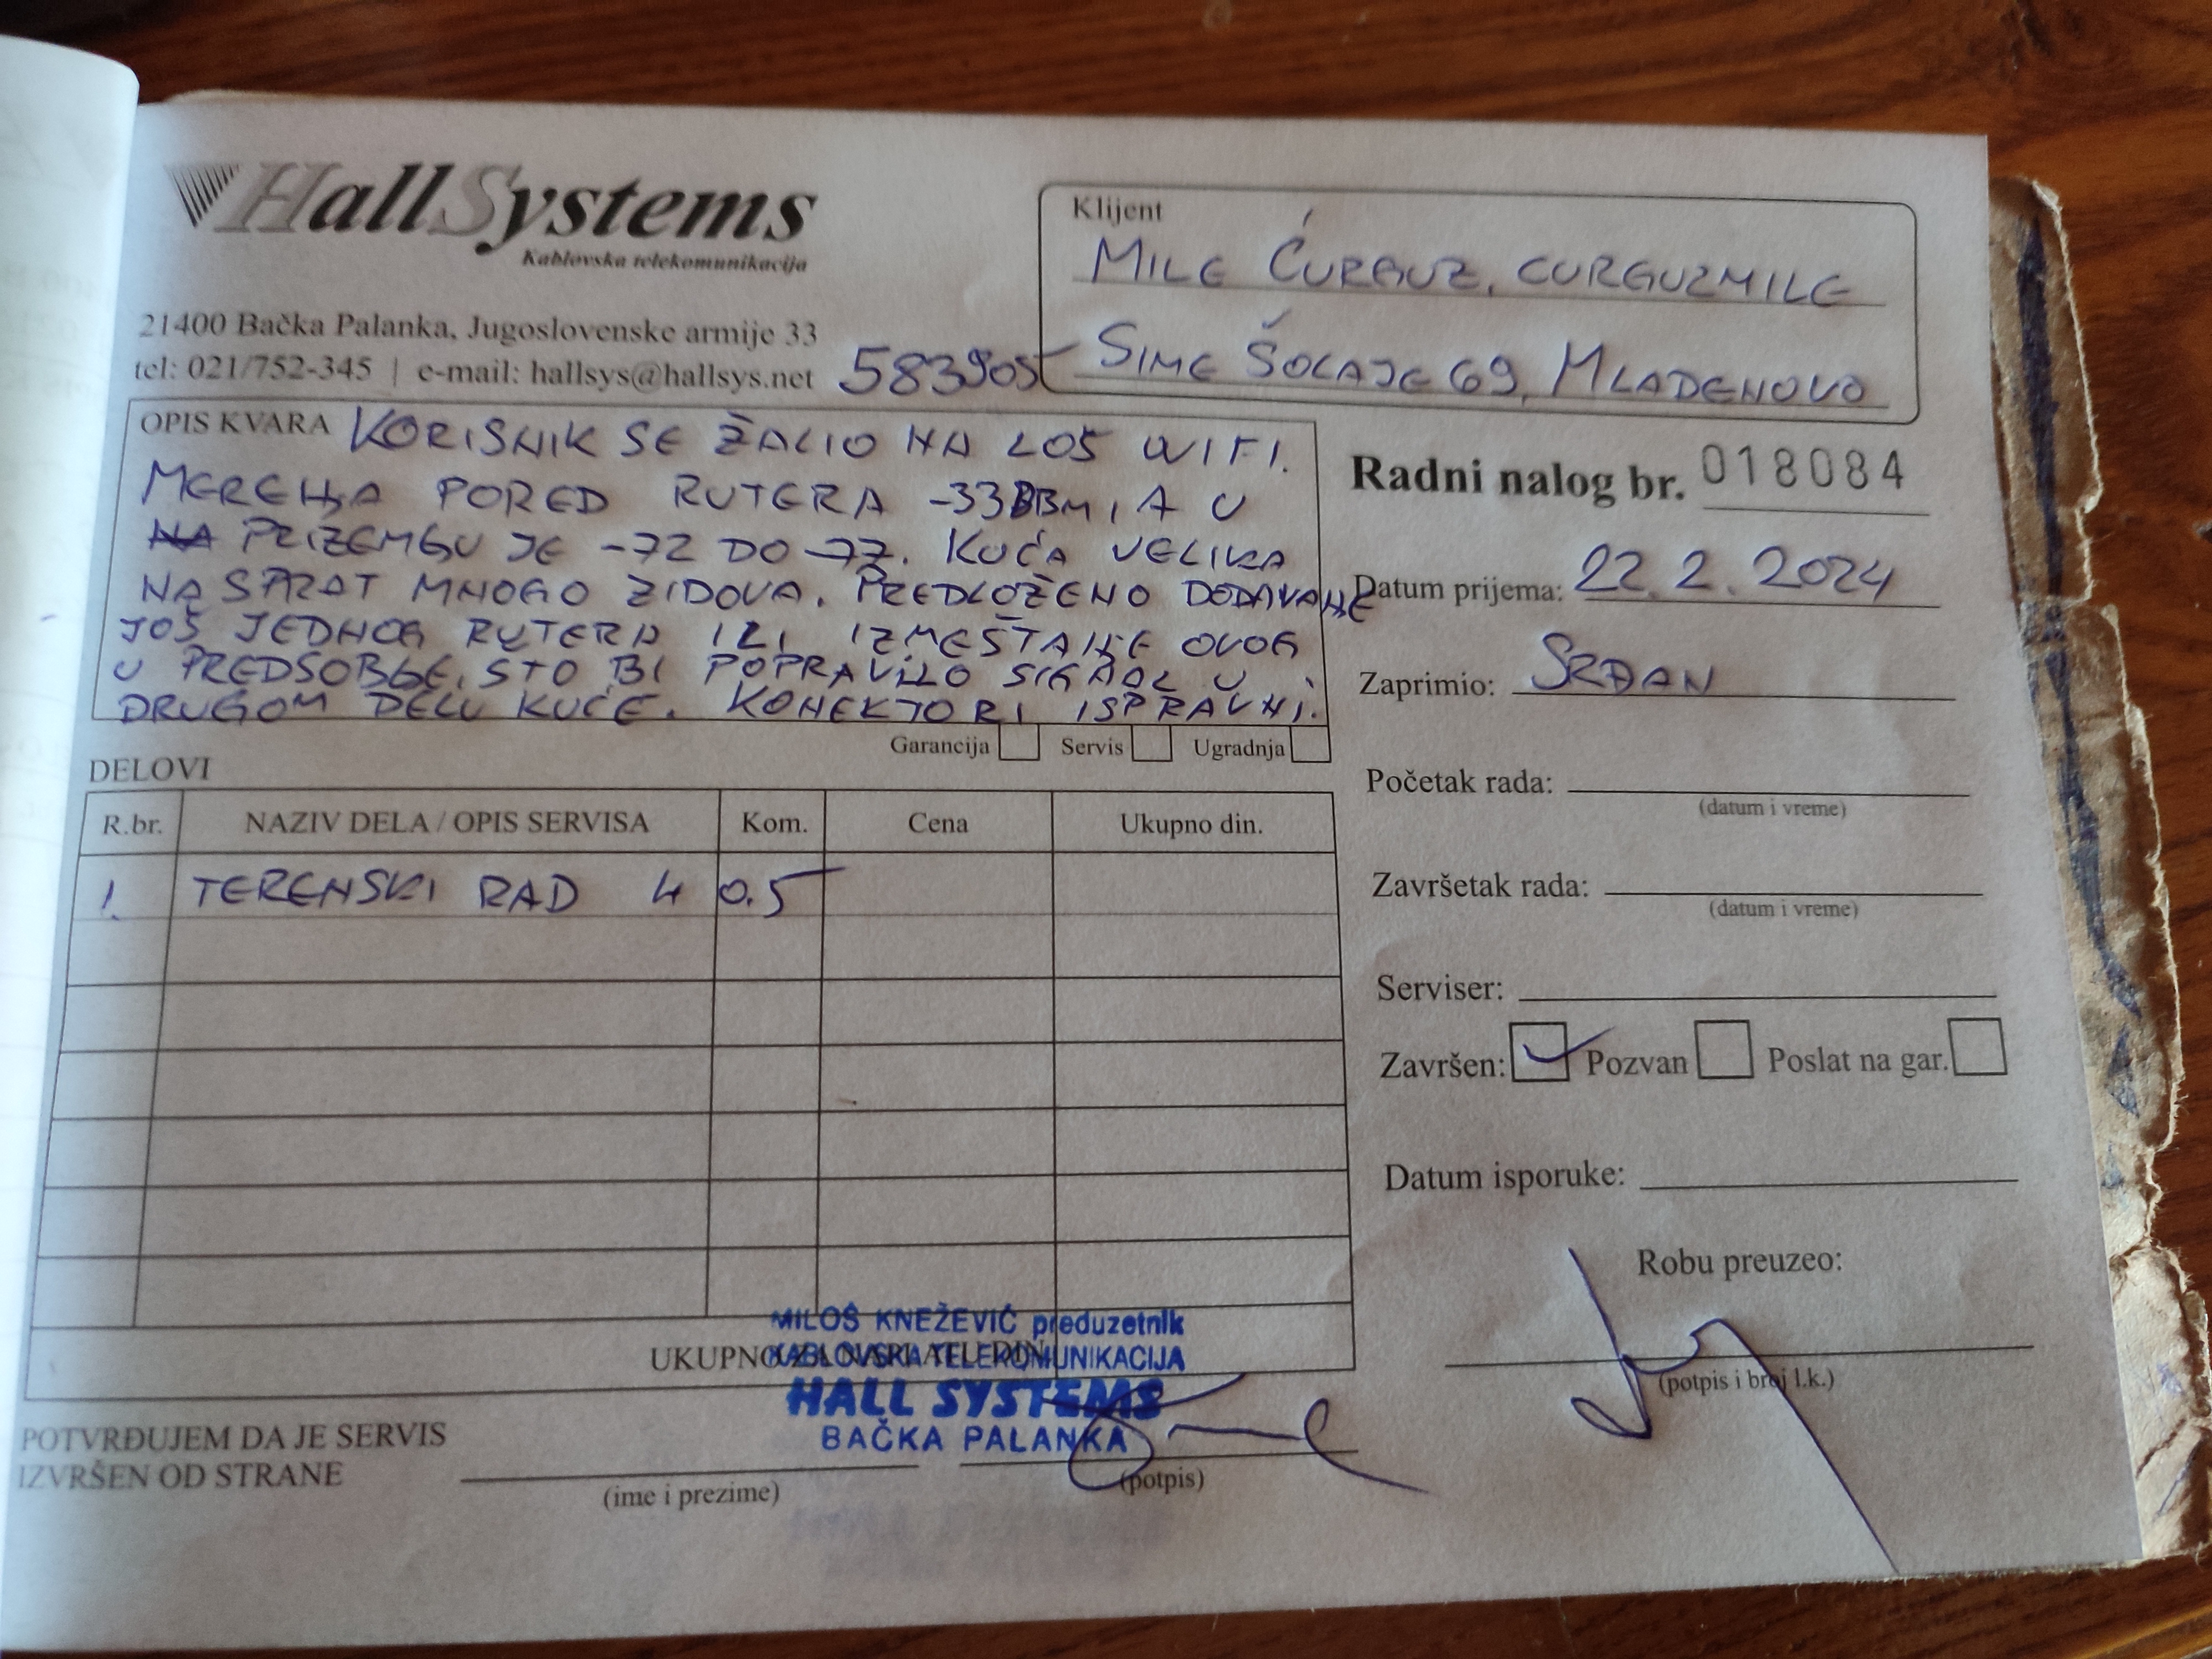 HallSystems
Kablovska telekomunikacija
21400 Bačka Palanka, Jugoslovenske armije 33
tel: 021/752-345 | e-mail: hallsys@hallsys.net
583905
Klijent
MILE ĆURGUZ, CURGUZMILE
SIME ŠOLAJE 69, MLADENOVO
OPIS KVARA KORISNIK SE ŽALIO NA LOŠ WIFI.
MERENJA PORED RUTERA -33 A U
PRIZEMLJU JE -72 DO -77. KUĆA VELIKA
NA SPRAT MNOGO ZIDOVA. PREDLOŽENO DODAVANJE
JOŠ JEDNOG RUTERA ILI IZMEŠTANJE OVOG
U PREDSOBLJE, STO BI POPRAVILO SIGNAL U
DRUGOM DELU KUĆE. KONEKTORI ISPRAVNI.
Garancija Servis Ugradnja
Radni nalog br. 018084
Datum prijema: 22.2.2024
Zaprimio: SRĐAN
Početak rada:
(datum i vreme)
Završetak rada:
(datum i vreme)
Serviser:
Završen: Pozvan Poslat na gar.
Datum isporuke:
Robu preuzeo:
(potpis i broj l.k.)
DELOVI
R.br. NAZIV DELA / OPIS SERVISA Kom. Cena Ukupno din.
1. TERENSKI RAD 4 0.5
MILOŠ KNEŽEVIĆ preduzetnik
UKUPNO ZA NAPLATU DIN
KABLOVSKA TELEKOMUNIKACIJA
HALL SYSTEMS
BAČKA PALANKA
POTVRĐUJEM DA JE SERVIS
IZVRŠEN OD STRANE
(ime i prezime) (potpis)